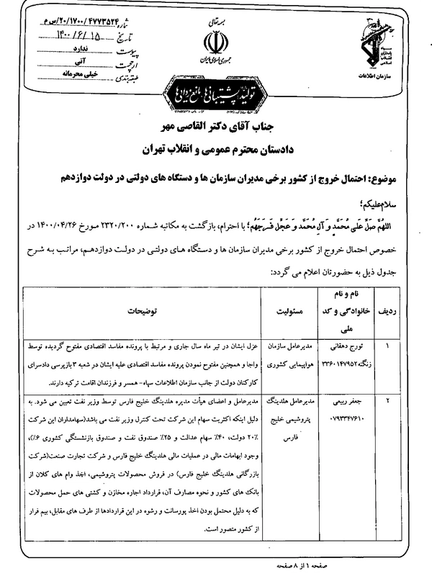 بسمه تعالی
جمهوری اسلامی ایران
سازمان اطلاعات
شماره ۲۰/۱۷۰۰/۴۷۷۳۵۲۴/س م
تاریخ ۱۴۰۰/۶/۱۵
پیوست ندارد
ارجحیت آنی
طبقه بندی خیلی محرمانه
تولید، پشتیبانی‌ها، مانع‌زدایی‌ها
جناب آقای دکتر القاصی مهر
دادستان محترم عمومی و انقلاب تهران
موضوع: احتمال خروج از کشور برخی مدیران سازمان ها و دستگاه های دولتی در دولت دوازدهم
سلام‌علیکم؛
اللهم صل علی محمد و آل محمد و عجل فرجهم؛ با احترام، بازگشت به مکاتبه شماره ۲۳۲۰/۲۰۰ مورخ ۱۴۰۰/۰۴/۲۶ در
خصوص احتمال خروج از کشور برخی مدیران سازمان ها و دستگاه های دولتی در دولت دوازدهم، مراتب به شرح
جدول ذیل به حضورتان اعلام می گردد:
ردیف
نام و نام
خانوادگی و کد
ملی
مسئولیت
توضیحات
۱
تورج دهقانی
زنگنه
مدیرعامل سازمان
هواپیمایی کشوری
عزل ایشان در تیر ماه سال جاری و مرتبط با پرونده مفاسد اقتصادی مفتوح گردیده توسط
واجا و همچنین مفتوح نمودن پرونده مفاسد اقتصادی علیه ایشان در شعبه ۳ بازپرسی دادسرای
کارکنان دولت از جانب سازمان اطلاعات سپاه- همسر و فرزندان اقامت ترکیه دارند.
۲
جعفر ربیعی
۰۷۹۳۳۴۷۶۱۰
مدیرعامل هلدینگ
پتروشیمی خلیج
فارس
مدیرعامل و اعضای هیأت مدیره هلدینگ خلیج فارس توسط وزیر نفت تعیین می شود. به
دلیل اینکه اکثریت سهام این شرکت تحت کنترل وزیر نفت می باشد(سهامداران این شرکت
۲۰٪ دولت، ۴۰٪ سهام عدالت و ۲۵٪ صندوق نفت و صندوق بازنشستگی کشوری ۶٪)،
وجود ابهامات مالی در عملیات مالی هلدینگ خلیج فارس و شرکت تجارت صنعت(شرکت
بازرگانی هلدینگ خلیج فارس) در فروش محصولات پتروشیمی، اخذ وام های کلان از
بانک های کشور و نحوه مصارف آن، قرارداد اجاره مخازن و کشتی های حمل محصولات
که به دلیل محتمل بودن اخذ پورسانت و رشوه در این قراردادها از طرف های مقابل، بیم فرار
از کشور متصور است.
صفحه ۱ از ۸ صفحه